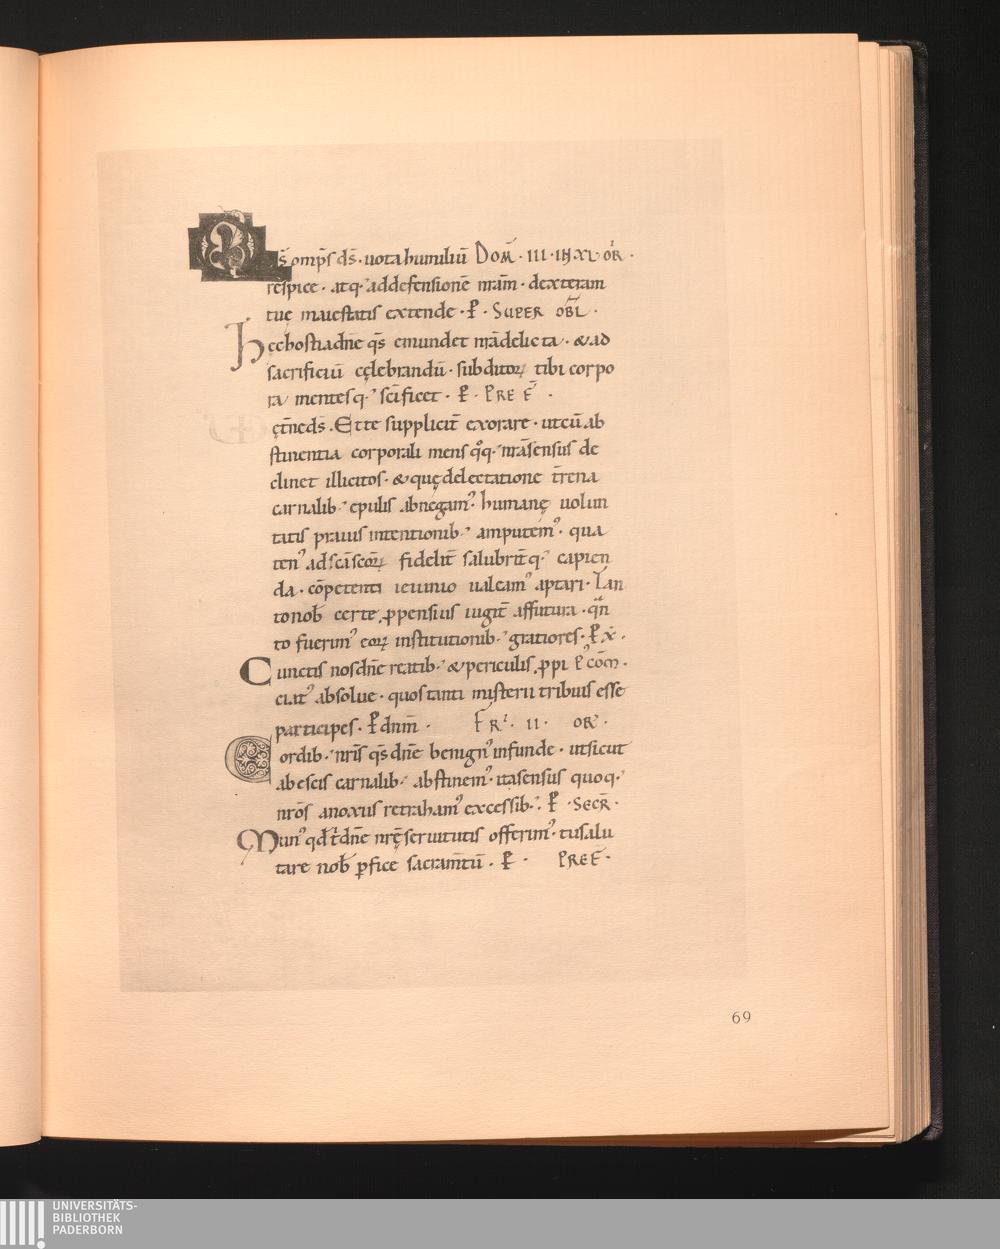 Qs̄ omp̄s ds̄ · uota humiliū Dom̄ · III · IN XL OR̄ ·
respice · atq: ad defensionē nr̄am · dexteram
tuę maiestatis extende · P̄ · SUPER OBL̄ ·
Hęc hostia dn̄e qs̄ emundet nr̄a delicta · & ad
sacrificiū cęlebrandū · subditoꝝ tibi corpo
ra mentesq: sc̄ificet · P̄ · PRE F̄ ·
ęt̄ne ds̄ · Et te suppliciť exorare · ut cū ab
stinentia corporali mens qͦq: nr̄a sensus de
clinet illicitos · & quę delectatione t̄rena
carnalib: epulis abnegam᾿ · humanę uolun
tatis prauis intentionib: amputem᾿ · qua
ten᾿ ad sc̄a sc̄oꝝ fideliť salubriťq: capien
da · cōpetenti ieiunio ualeam᾿ aptari · Tan
to nob̄ certe ꝓpensius iugiť affutura · qn̄
to fuerim᾿ eoꝝ institutionib: gratiores · P̄ x̄ ·
Cunctis nos dn̄e reatib: & periculis ꝓpi P᾿ cōm̄ ·
ciat᾿ absolue · quos tanti mysterii tribuis esse
participes · P̄ dnm̄ · FR̄ · II · OR̄ ·
Cordib: nr̄is qs̄ dn̄e benign᾿ infunde · ut sicut
ab escis carnalib: abstinem᾿ · ita sensus quoq:
nr̄os a noxiis retraham᾿ excessib: · P̄ · SECR̄ ·
Mun᾿ qd̄ t̄ dn̄e nr̄ę seruitutis offerim᾿ · tu salu
tare nob̄ ꝑfice sacram̄tū · P̄ · PREF̄ ·
69
UNIVERSITÄTS-
BIBLIOTHEK
PADERBORN